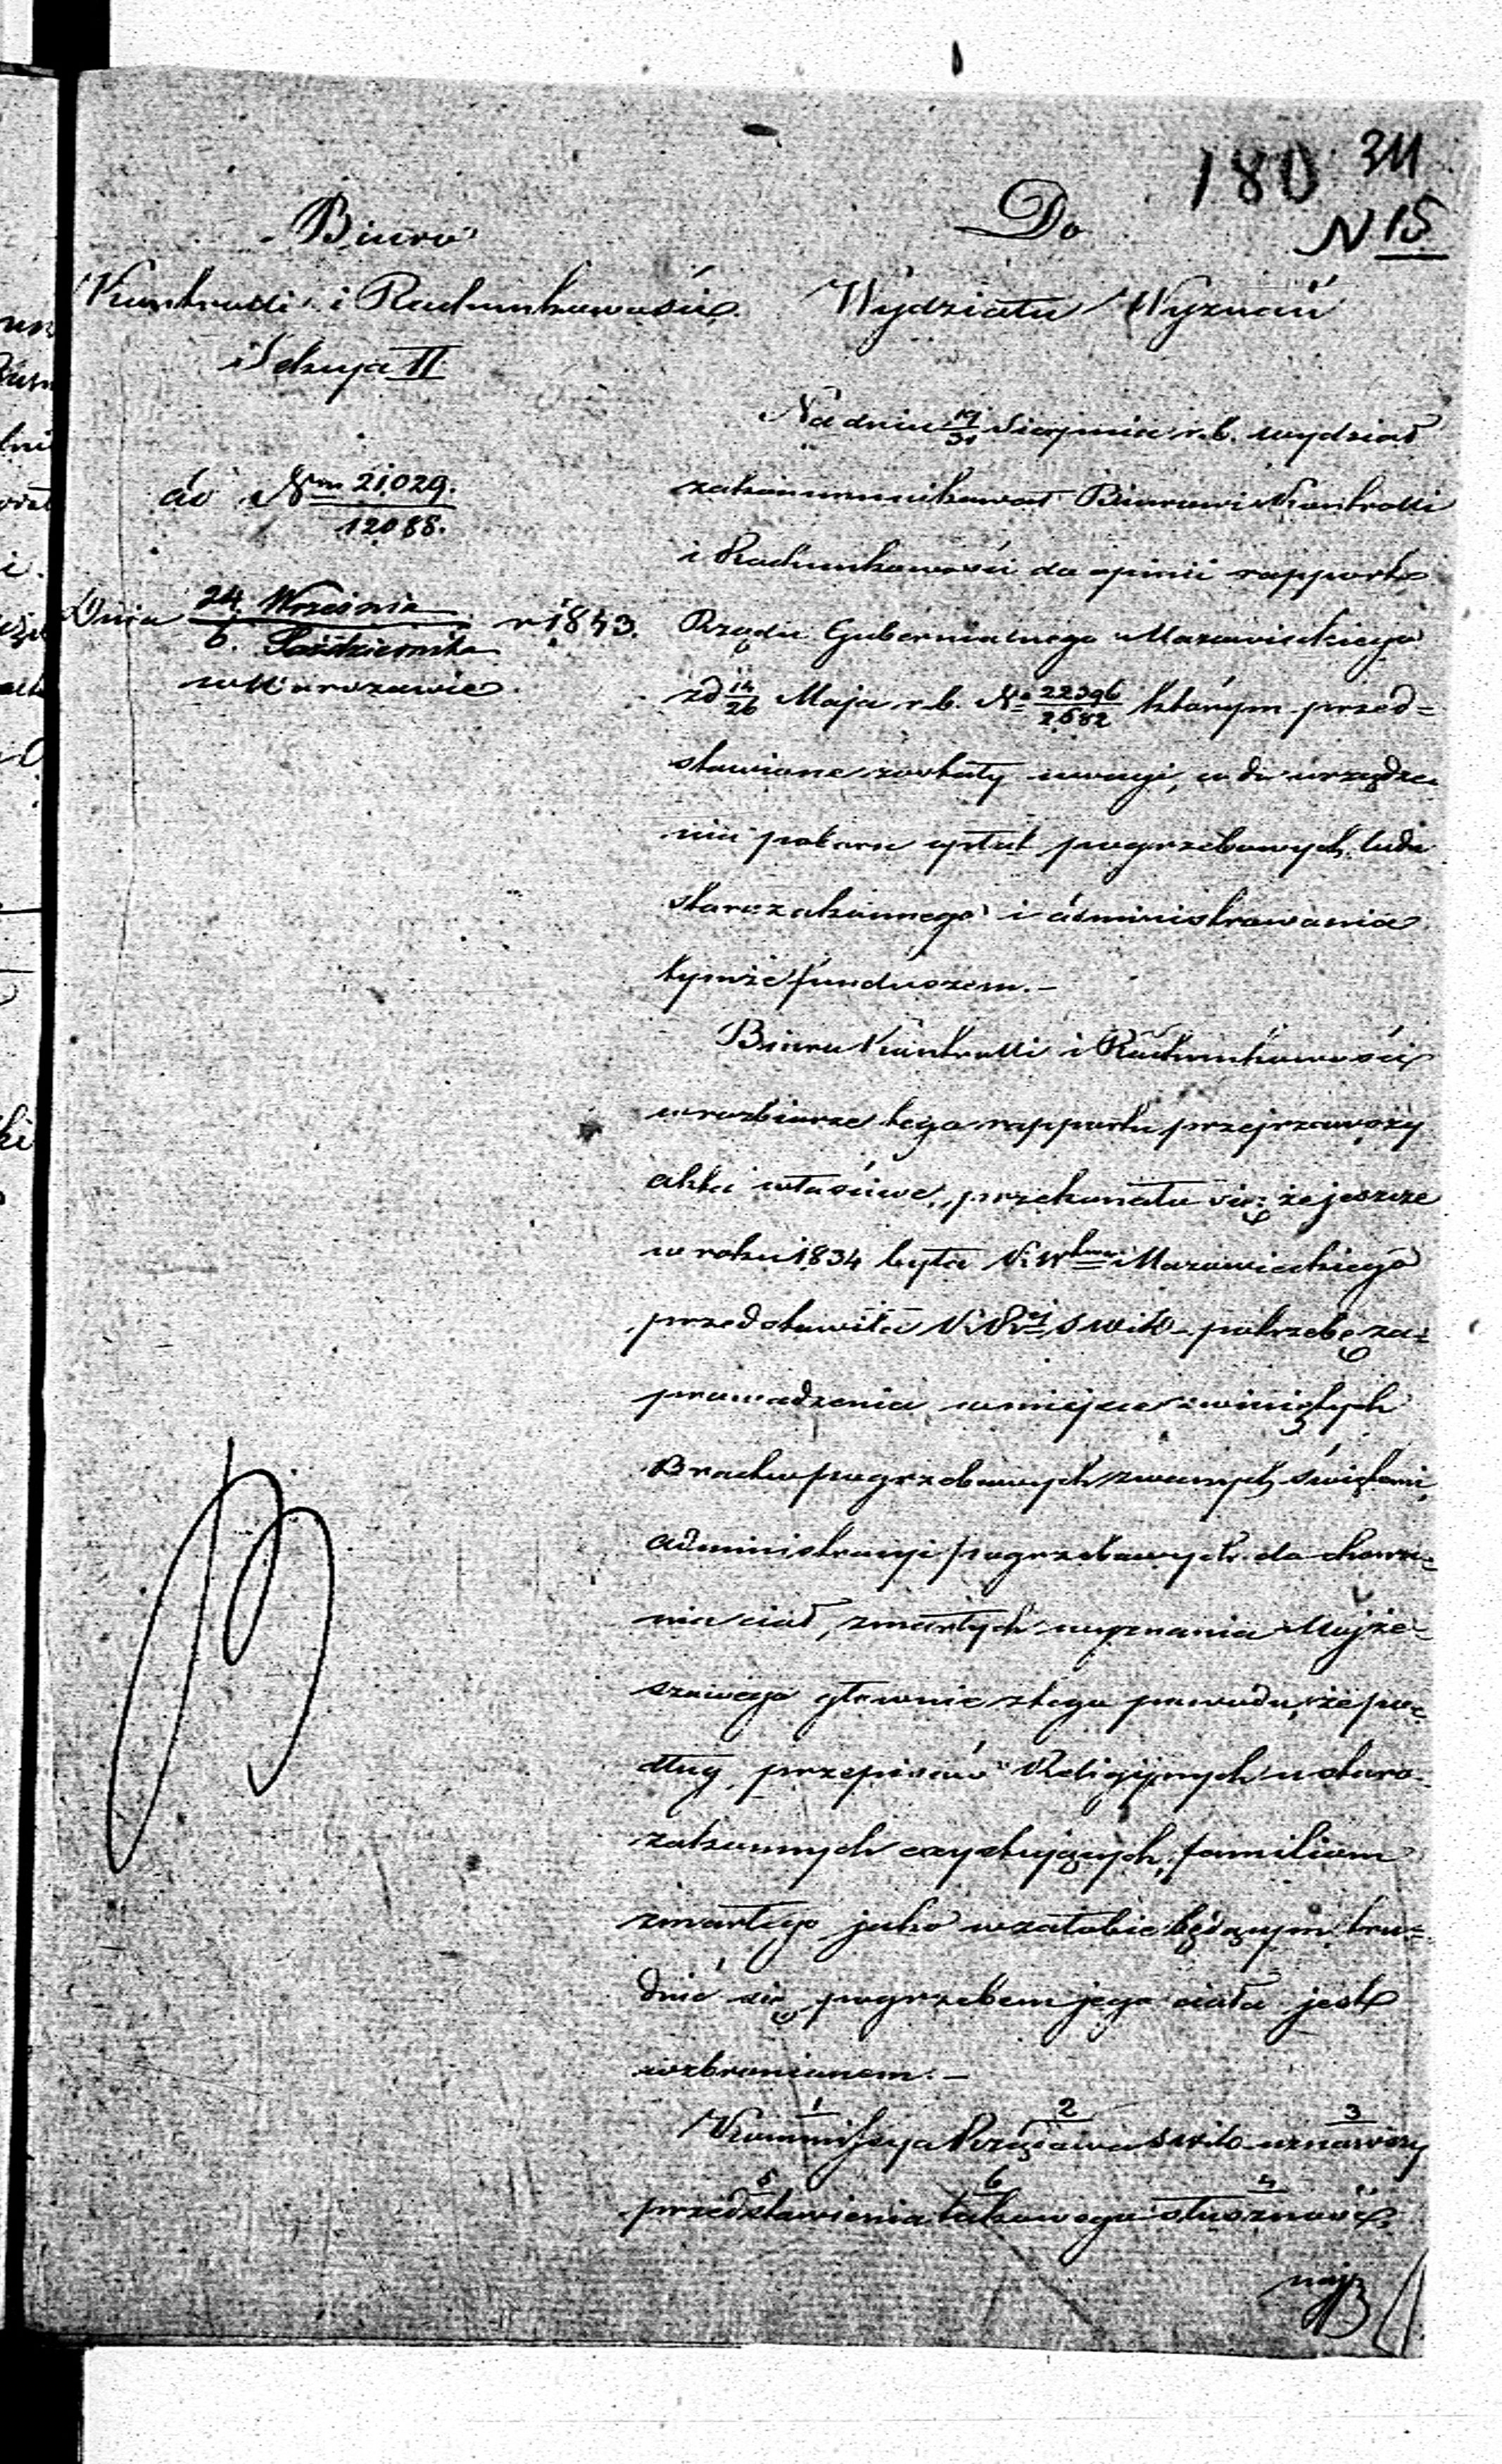 180 311
N 15
Biuro
Kontrolli i Rachunkowości
Sekcya II
ad Nrm 21029.
12088.
Dnia 24. Września r 1843.
6. Października
w Warszawie
Do
Wydziału Wyznań
Na dniu 19/31 Sierpnia r. b. wydział
zakommunikował Biurowi Kontrolli
i Rachunkowości do opinii rapport
Rządu Gubernialnego Mazowieckiego
z d 14/26 Maja r. b. No 22396/2682 którym przed=
stawione zostały uwagi, co do urządze=
nia poboru opłat pogrzebowych ludu
starozakonnego i administrowania
tymże funduszem.—
Biuro Kontrolli i Rachunkowości
w rozbiorze tego rapportu przejrzawszy
akta właściwe, przekonało się że jeszcze
w roku 1834 była K. Wdka Mazowieckiego
przedstawiła K. Rzej S W i D potrzebę za=
prowadzenia w miejsce zwiniętych
Bractw pogrzebowych zwanych świętemi,
administracyi pogrzebowych do chowa=
nia ciał, zmarłych wyznania Mojże=
szowego głownie z tego powodu, że po=
dług przepisów Religijnych u staro=
zakonnych exystujących, familiom
zmarłego jako w żałobie będącym tru=
dnić się pogrzebem jego ciała jest
wzbronionem.—
1 2 3
Kommissya Rządowa uznawszy
5 6 4
przedstawienia takowego słuszność,